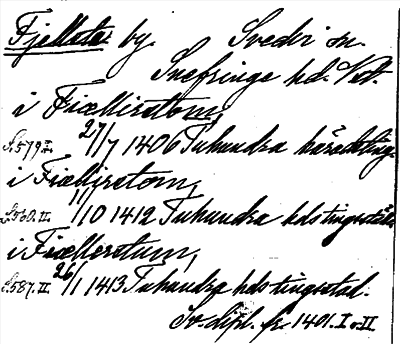 Fjellsta by. Svedvi sn.
Snefringe hd. Vstm.
i Fiællirstom,
S.579.I. 27/7 1406 Tuhundra häradsting.
i Fiællirstom,
S.560.II. 1/10 1412 Tuhundra hdstingsställe
i Fiællerstum,
S.587.II. 26/1 1413 Tuhundra hdstingsstad.
Sv. dipl. fr. 1401. I o. II